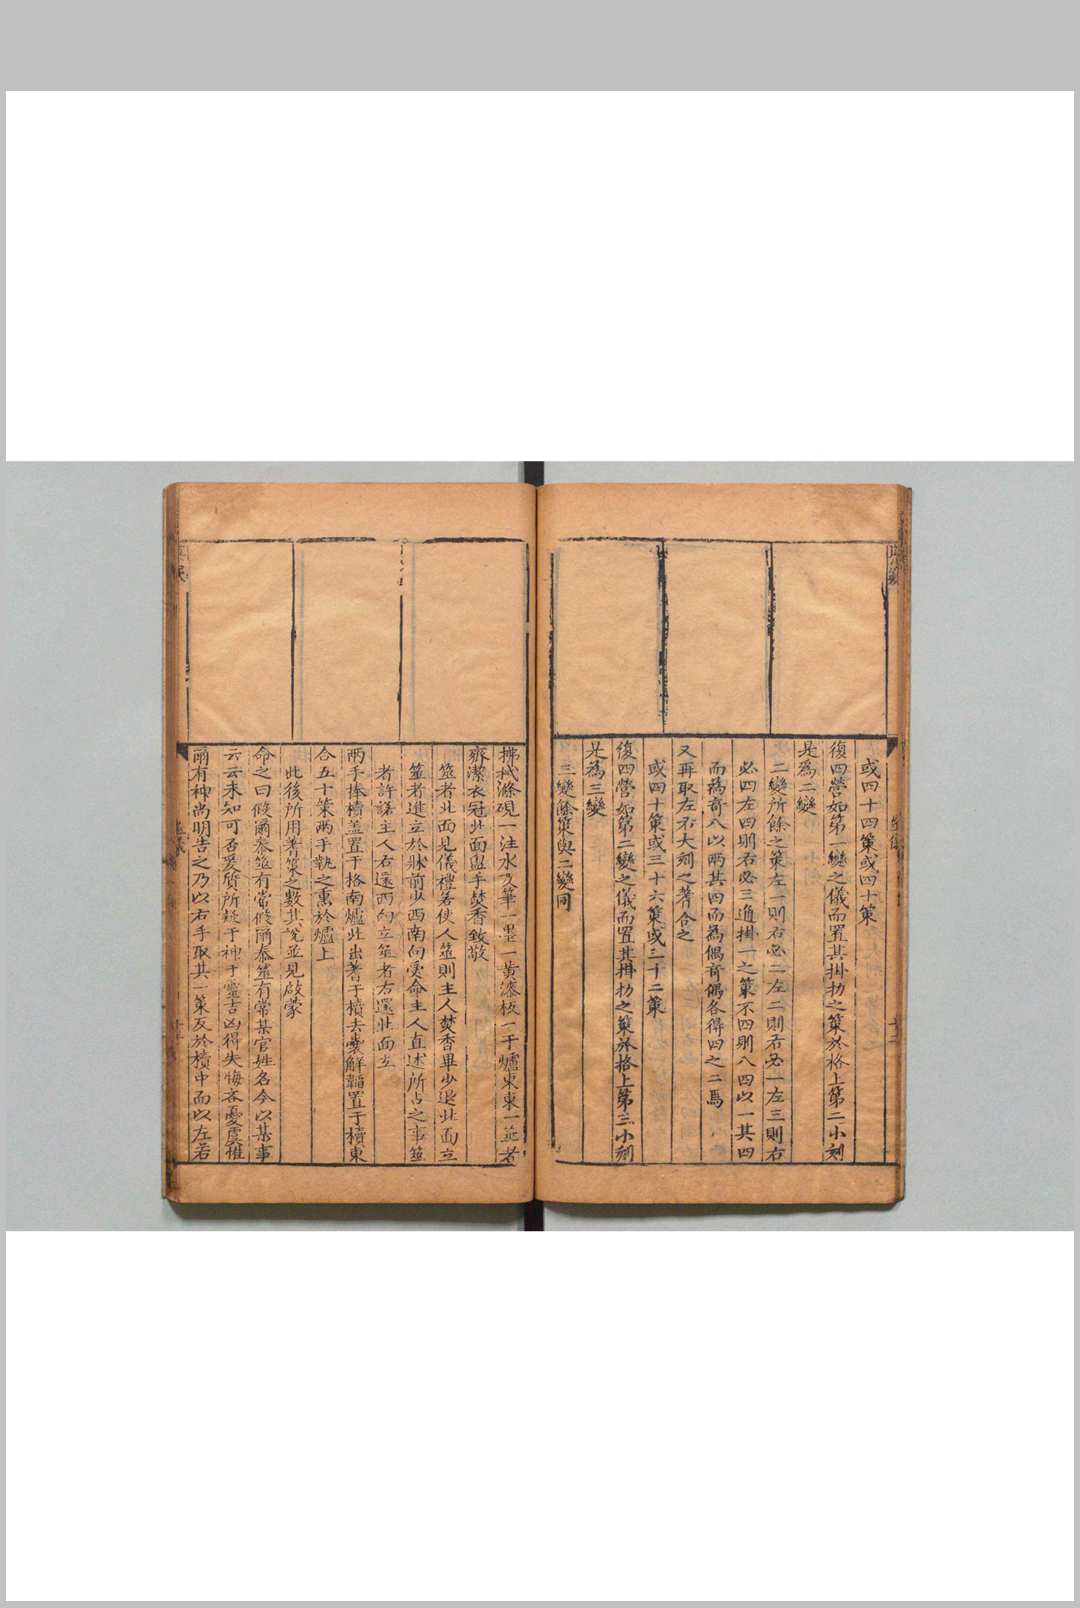 或四十四策或四十策
復四營如第一變之儀而置其掛扐之策於格上第二小刻
是爲二變
二變所餘之策左一則右必二左二則右必一左三則右
必四左四則右必三通掛一之策不四則八四以一其四
而爲奇八以兩其四而爲偶奇偶各得四之二焉
又再取左右大刻之蓍合之
或四十策或三十六策或三十二策
復四營如第二變之儀而置其掛扐之策於格上第三小刻
是爲三變
三變餘策與二變同
拂拭滌硯一注水及筆一墨一黄漆板一于爐東東一筮者
齊潔衣冠北面盥手焚香致敬
筮者北面見儀禮若使人筮則主人焚香畢少退北面立
筮者進立於牀前少西南向受命主人直述所占之事筮
者許諾主人右還西向立筮者右還北面立
两手捧櫝盖置于格南爐北出蓍于櫝去囊解韜置于櫝東
合五十策两手執之熏於爐上
此後所用蓍策之數其說並見啟蒙
命之曰假爾泰筮有常假爾泰筮有常某官姓名今以某事
云云未知可否爰質所疑于神于靈吉凶得失悔吝憂虞惟
爾有神尚明告之乃以右手取其一策反於櫝中而以左右